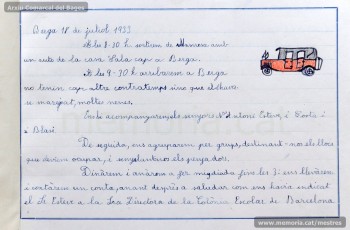 Arxiu Comarcal del Bages
18 de juliol 1933
A les 8-10 h. sortirem de Manresa amb
un auto de la casa Sala cap a Berga.
A les 9-30 h. arribarem a Berga
no tenim cap altre contratemps sinó que el
se maregat, moltes nenes.
Ens acompanyaren els senyors Antoni Esteve, i
Blasi.
De seguida, ens agruparem per grups, destinant-nos els llocs
que devíem ocupar, i
Dinàrem i anàrem a fer migdiada fins les 3: ens llevàrem
i cantàrem un conte, anant després a saludar com ens havia indicat
el Sr. Esteve a la Sra Directora de la Colònia Escolar de Barcelona
memoria.cat
www.memoria.cat/mestres